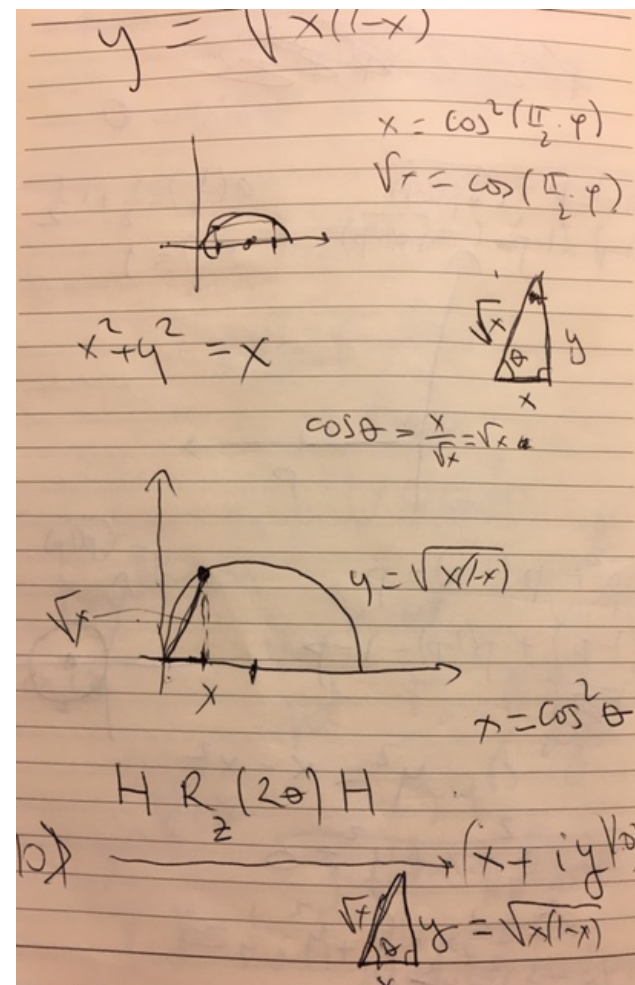 y = √x(1-x)
x = cos²(π/2 · φ)
√x = cos(π/2 · φ)
√x
θ
y
x
x² + y² = x
cosθ = x/√x = √x
y = √x(1-x)
√x
x
x = cos²θ
H R_z (2θ) H
|0⟩ → (x + iy)
√x θ y = √x(1-x)
x